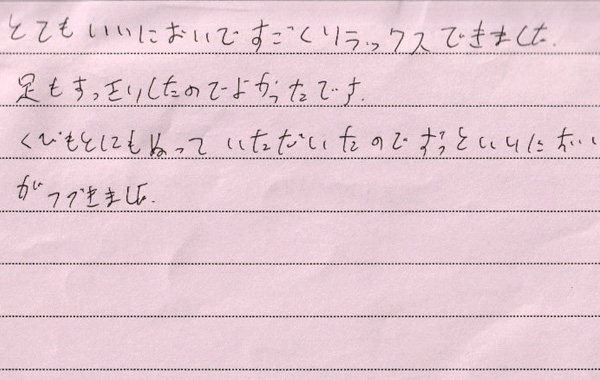 とてもいいにおいですごくリラックスできました.
足もすっきりしたのでよかったです.
くびもとにもぬっていただいたのでずっといいにおい
がつづきました.